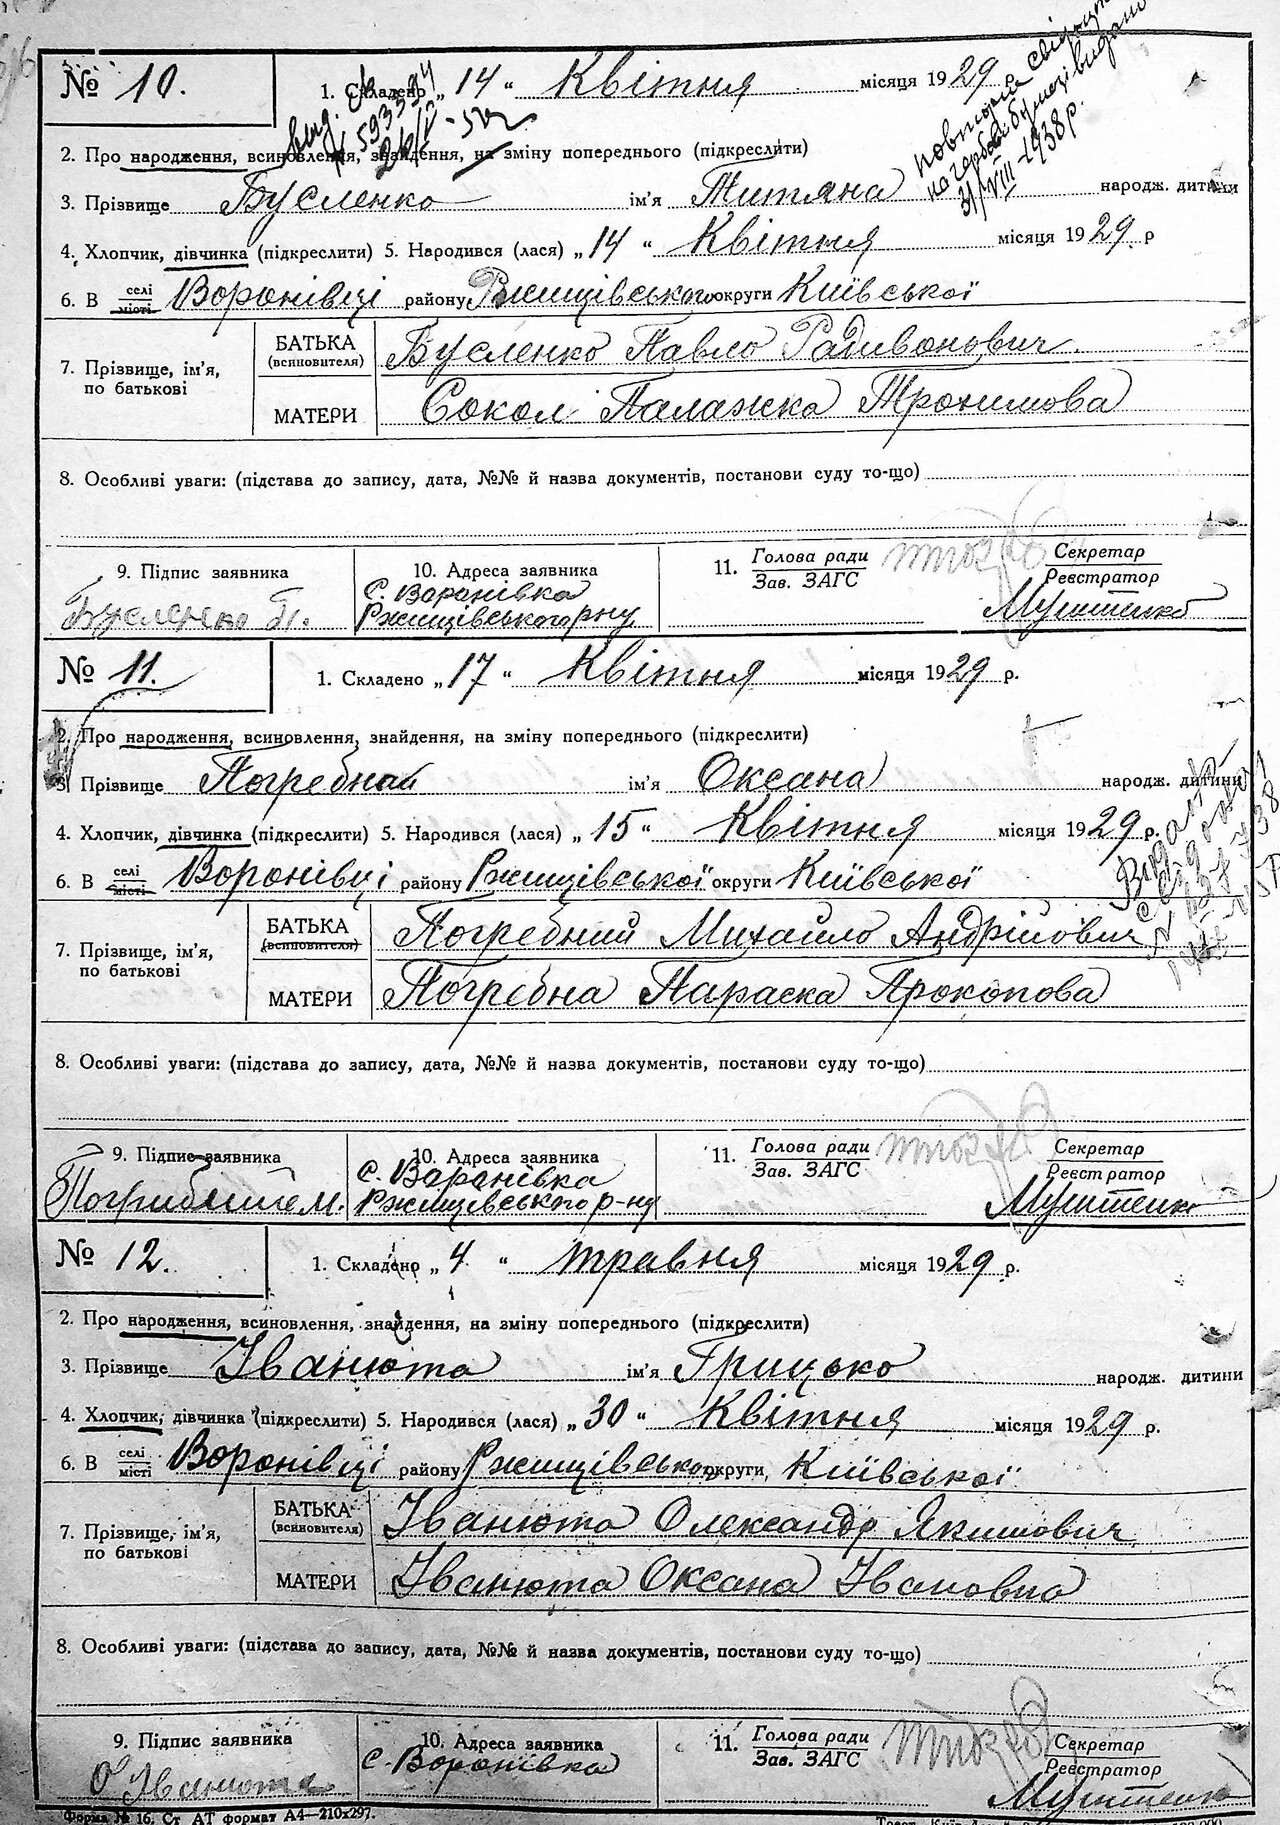 № 10. 1. Складено „14“ Квітня місяця 1929 р.
повторн
на гербов. бумазі видано
31/VIII-1938 р.
вид.
№ 593394
2. Про народження, всиновлення, знайдення, на зміну попереднього (підкреслити)
3. Прізвище Бусленко ім'я Титяна народж. дитини
4. Хлопчик, дівчинка (підкреслити) 5. Народився (лася) „14“ Квітня місяця 1929 р
6. В селі Воронівці району Ржищівського округи Київської
місті
7. Прізвище, ім'я, по батькові
БАТЬКА (всиновителя) Бусленко Павло Радивонович.
МАТЕРИ Сокол Палажка Трохимова
8. Особливі уваги: (підстава до запису, дата, №№ й назва документів, постанови суду то-що)
9. Підпис заявника 10. Адреса заявника 11. Голова ради Секретар
Зав. ЗАГС Реєстратор
Бусленко П. с. Варанівка
Ржищівського р-ну
№ 11. 1. Складено „17“ Квітня місяця 1929 р.
2. Про народження, всиновлення, знайдення, на зміну попереднього (підкреслити)
3. Прізвище Погребная ім'я Оксана народж. дитини
4. Хлопчик, дівчинка (підкреслити) 5. Народився (лася) „15“ Квітня місяця 1929 р.
6. В селі Воронівці району Ржищівської округи Київської
місті
7. Прізвище, ім'я, по батькові
БАТЬКА (всиновителя) Погребний Михайло Андрійович
МАТЕРИ Погребна Параска Прокопова
8. Особливі уваги: (підстава до запису, дата, №№ й назва документів, постанови суду то-що)
9. Підпис заявника 10. Адреса заявника 11. Голова ради Секретар
Зав. ЗАГС Реєстратор
с. Варанівка
Ржищівського р-ну
№ 12. 1. Складено „4“ травня місяця 1929 р.
2. Про народження, всиновлення, знайдення, на зміну попереднього (підкреслити)
3. Прізвище Іванюта ім'я Грицько народж. дитини
4. Хлопчик, дівчинка (підкреслити) 5. Народився (лася) „30“ Квітня місяця 1929 р.
6. В селі Воронівці району Ржищівського округи Київської
місті
7. Прізвище, ім'я, по батькові
БАТЬКА (всиновителя) Іванюта Олександр Якимович
МАТЕРИ Іванюта Оксана Івановна
8. Особливі уваги: (підстава до запису, дата, №№ й назва документів, постанови суду то-що)
9. Підпис заявника 10. Адреса заявника 11. Голова ради Секретар
Зав. ЗАГС Реєстратор
О Іванюта с. Воронівка
Форма № 16. Ст. АТ формат А4—210x297.